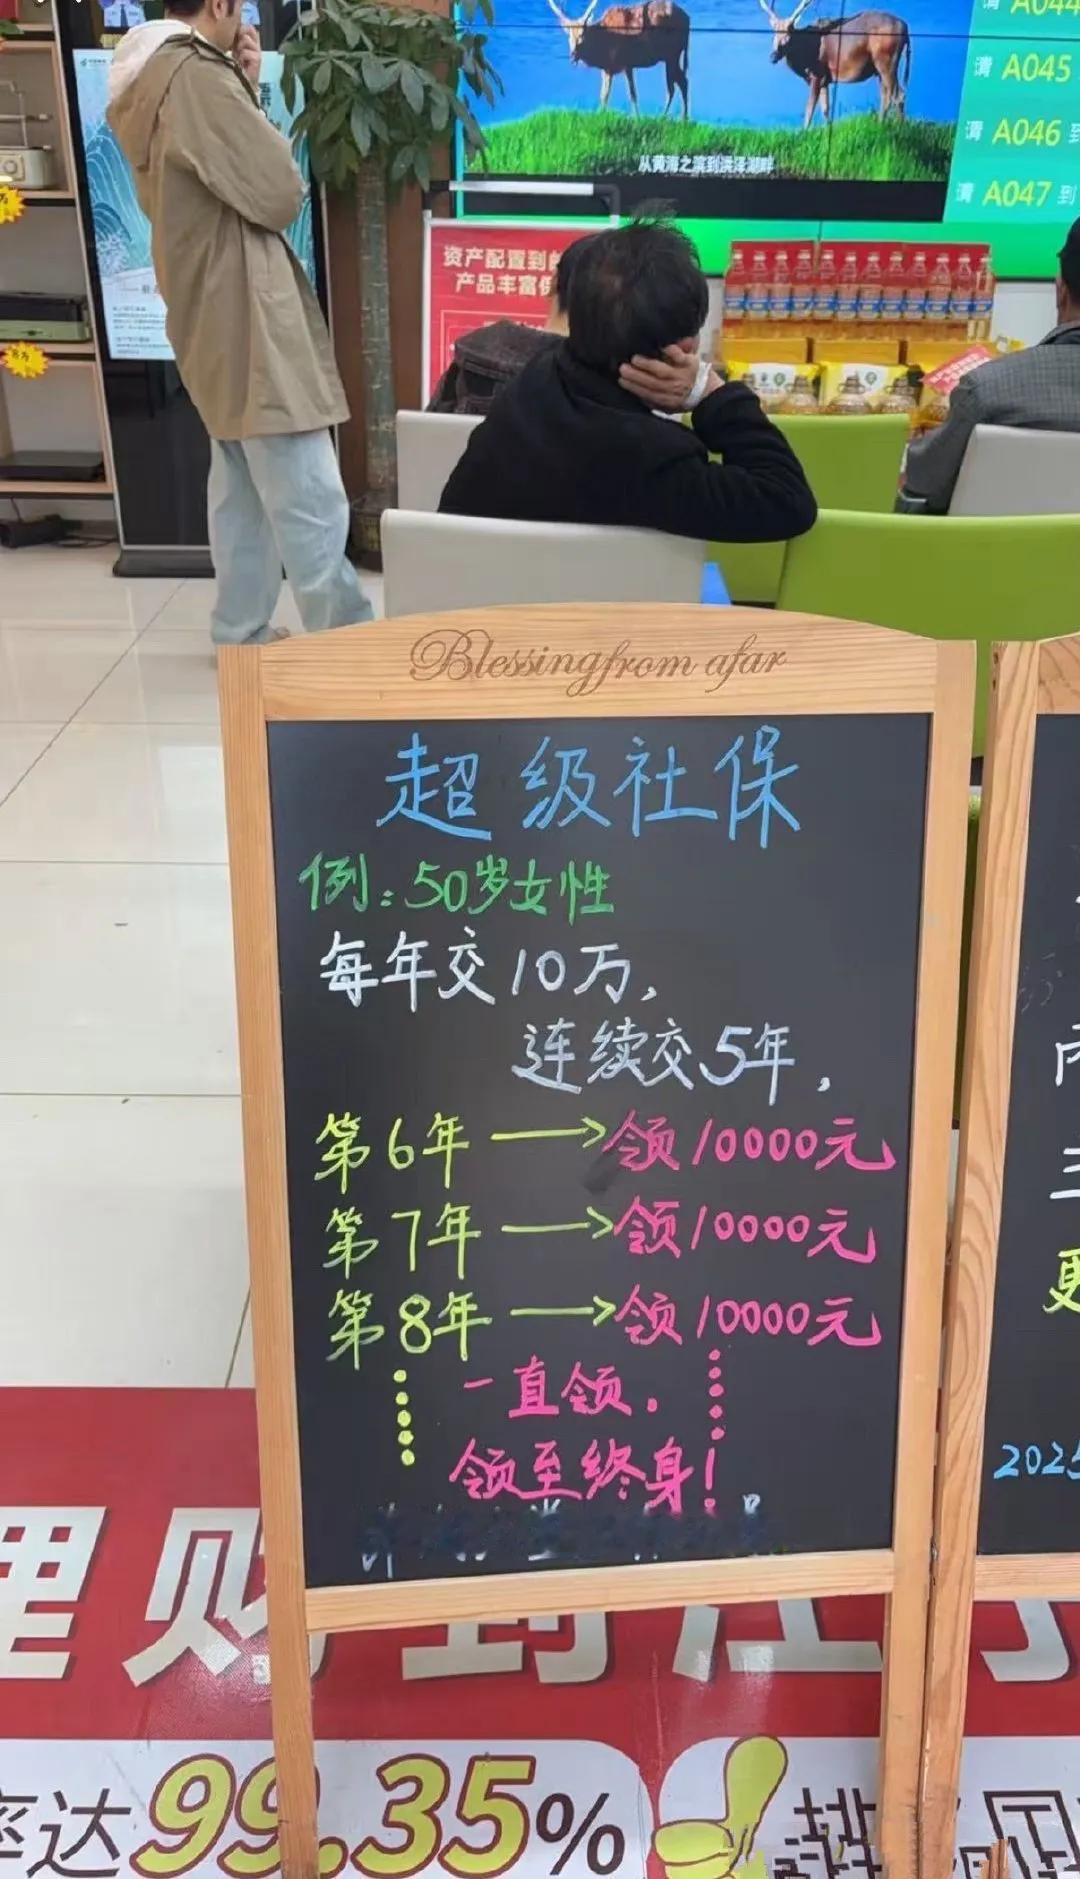 请 A044
请 A045
请 A046 到
请 A047 到
从黄海之滨到洪泽湖畔
资产配置到
产品丰富
Blessing from afar
超级社保
例：50岁女性
每年交10万，
连续交5年，
第6年→领10000元
第7年→领10000元
第8年→领10000元
一直领．
领至终身！
2025
理财到江
率达99.35%